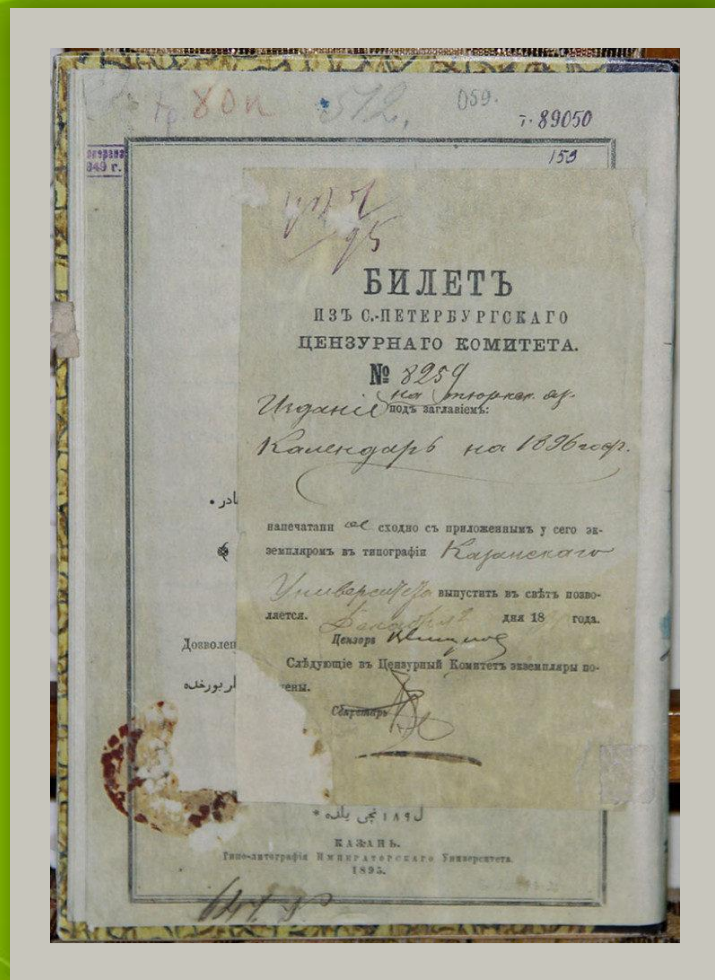 80п 512. 059.
т. 89050
153
849 г.
95
БИЛЕТЪ
ИЗЪ С.-ПЕТЕРБУРГСКАГО
ЦЕНЗУРНАГО КОМИТЕТА.
№ 8259
Изданіе на тюркск. яз.
подъ заглавіемъ:
Календарь на 1896 годъ.
ادر •
напечатанное сходно съ приложеннымъ у сего эк-
земпляромъ въ типографіи Казанскаго
Университета выпустить въ свѣтъ позво-
ляется. Декабря 2 дня 18 года.
Цензоръ
Дозволен
Слѣдующіе въ Цензурный Комитетъ экземпляры по-
чены.
Секретарь
ل ١٨٩ نچی یلده *
КАЗАНЬ.
Типо-литографія Императорскаго Университета.
1895.